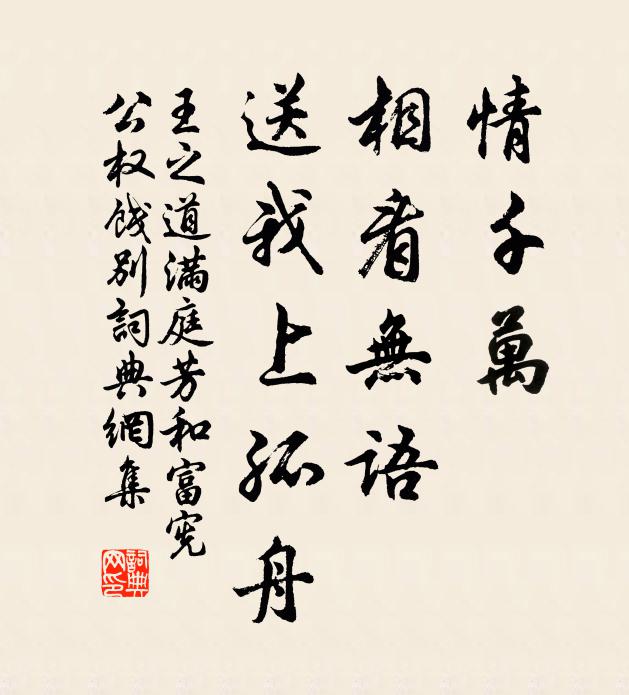 情千萬
相看無語
送我上孤舟
王之道滿庭芳和富宪
公权餞別詞典網集
詞典
网印